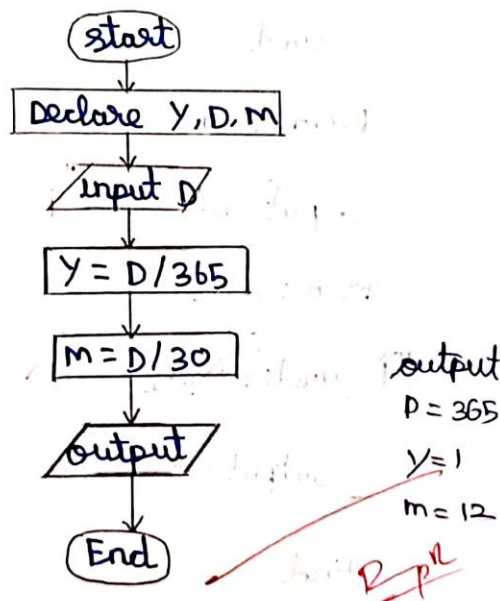 start
Declare Y, D, M
input D
Y = D/365
M = D/30
output
End
output
D = 365
Y = 1
m = 12